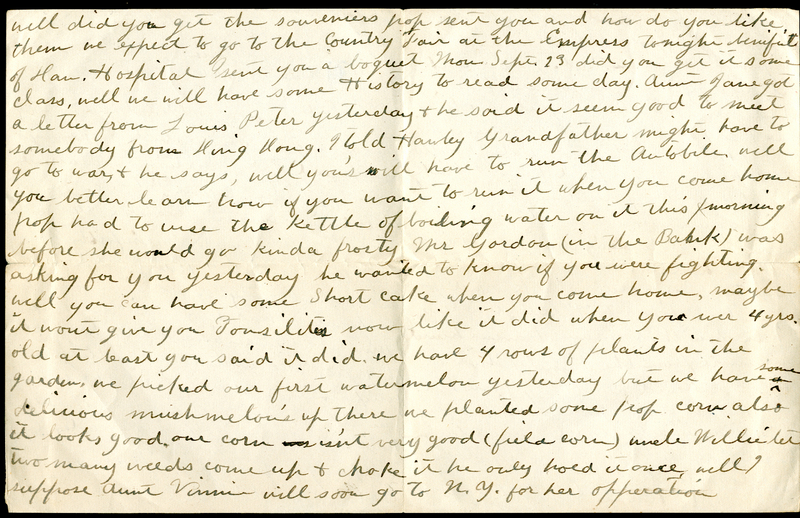 well did you get the souveniers pop sent you and how do you like
them we expect to go to the Country Fair at the Empress tonight benifit
of Han. Hospital sent you a boquet Mon Sept. 23 did you get it some
class, well we will have some History to read some day. Aunt Jane got
a letter from Louis Peter yesterday & he said it seem good to meet
somebody from Hing Hong. I told Hawley Grandfather might have to
go to war, & he says, well you's will have to run the Autobile. well
you better learn how if you want to run it when you come home
pop had to use the Kettle of boiling water on it this morning
before she would go kinda frosty Mr Gordon (in the Bank) was
asking for you yesterday he wanted to know if you were fighting.
well you can have some Short cake when you come home, maybe
it wont give you Tonsilites now like it did when you wer 4 yrs.
old at least you said it did. we have 4 rows of plants in the
garden. we picked our first watermelon yesterday but we have some
delicious mushmelon's up there we planted some pop corn also
it looks good. our corn isn't very good (field corn) uncle Willie let
two many weeds come up & choke it he only hoed it once, well I
suppose aunt Vinnie will soon go to N.Y. for her opperation